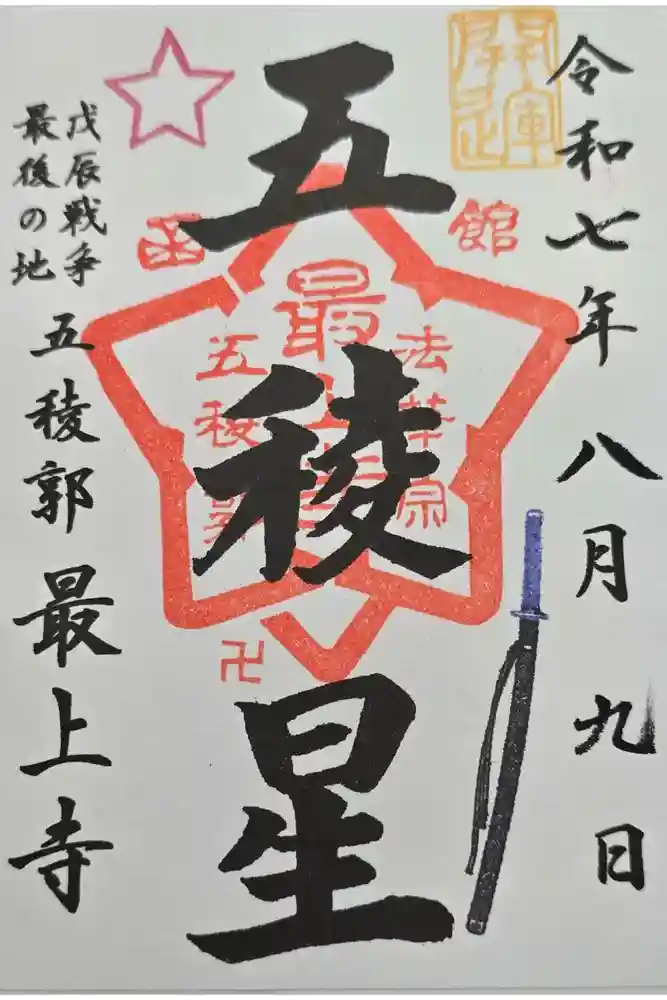 令和七年八月九日
開運
五稜星
函館
法華宗
最上寺
五稜郭
卍
戊辰戦争
最後の地
五稜郭最上寺